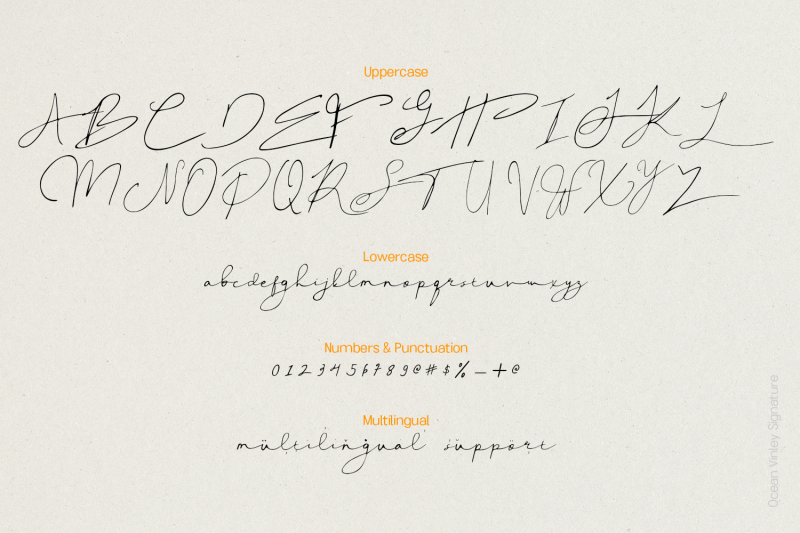 Uppercase
ABCDEFGHIJKL
MNOPQRSTUVWXYZ
Lowercase
abcdefghijklmnopqrstuvwxyz
Numbers & Punctuation
0123456789@#$%_+@
Multilingual
multilingual support
Ocean Vinley Signature